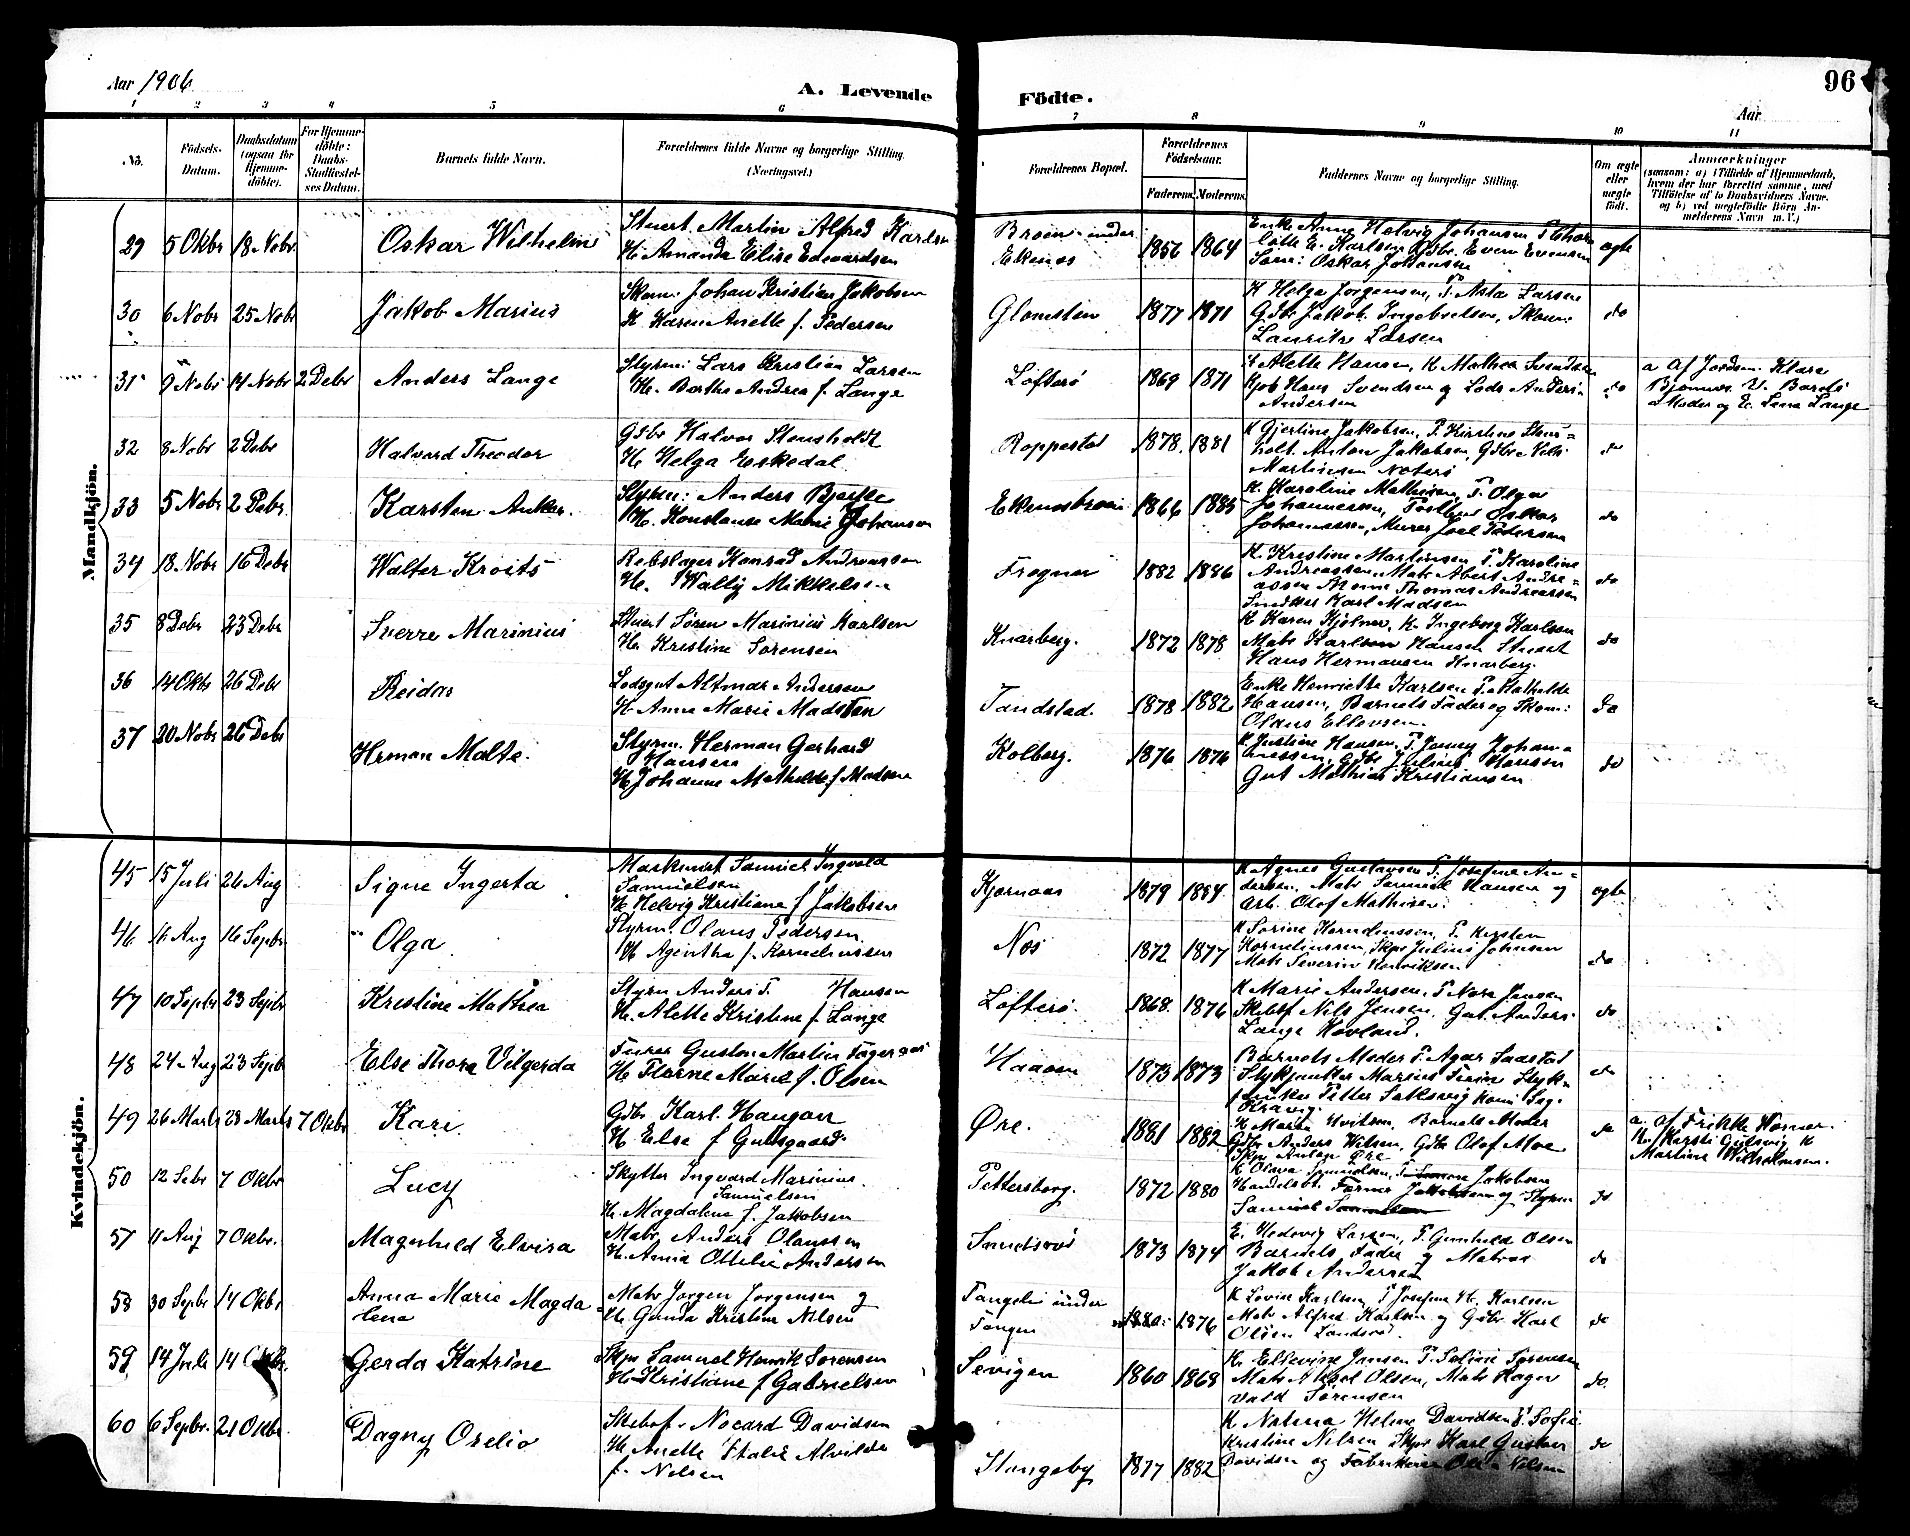 Aar 1906
A. Levende Födte.
96
Aar
1 2 3 4 5 6 7 8 9 10 11
No.
Födsels-Datum.
Daabsdatum (ogsaa for Hjemme-döbte).
For Hjemme-döbte: Daabs-Stadfæstel-ses Datum.
Barnets fulde Navn.
Forældrenes fulde Navne og borgerlige Stilling. (Næringsvei.)
Forældrenes Bopæl.
Forældrenes Födselsaar.
Faderens. Moderens.
Faddernes Navne og borgerlige Stilling.
Om ægte eller uægte født.
Anmærkninger
(saasom: a) i Tilfælde af Hjemmedaab, hvem der har forrettet samme, med Tilföielse af to Daabsvidners Navne. og b) ved uægtefödte Börn An-melderens Navn m. V.)
Mandkjön.
29 5 Okbr 18 Nobr Oskar Wilhelm
Stuert Martin Alfred Karlsen
H. Amanda Elise Edvardsen
Ekenes 1856 1864
Enke Anne Helvig Johansen
lotte E. Karlsen Gdbr. Even Evensen
Oskar Johansen
ægte
30 6 Nobr 25 Nobr Jakob Marius
Skom. Johan Kristian Jakobsen
H. Karen Anette f. Pedersen
Glomsten 1877 1871
K Helga Jorgensen, P. Asta Larsen
Gdbr Jakob Ingebretsen, Skom:
Lauritz Larsen
do
31 9 Nobr 14 Nobr 2 Debr Anders Lange
Styrm: Lars Kristian Larsen
H. Berthe Andrea f. Lange
Lofterø 1869 1871
K Alette Hansen, K Mathea Svendsen
Hans Svendsen og Lods Anders
Andersen
do
a Af Jordm. Klara
Moder og E. Lena Lange
32 8 Nobr 2 Debr Halvard Theodor
Gdbr Halvor Stensholdt
H. Helga Eskedal
Roppestad 1878 1881
K Gjertine Jakobsen, P. Kirstine Stens-
holt. Anton Jakobsen, Gdbr Nils
Martinsen Noterø
do
33 5 Nobr 2 Debr. Karsten Anker.
Styrm: Anders Bjerke
H. Konstanse Marie Johansen
1866 1885
K. Karoline Mathisen, P. Olga
Johannessen, Oskar
Johannessen, Murer Joel Pedersen
do
34 18 Nobr 16 Debr Walter Kroits
Rebslager Konrad Andreassen
H. Wally Mikkelsen
Fregner 1882 1886
K. Kristine Martinsen P. Karoline
Andreassen Matr Abert Andre-
assen Thomas Andreassen
Karl Madsen
do
35 8 Debr 23 Debr Sverre Marinius
Stuert Søren Marinius Karlsen
H. Kristine Sorensen
Knarberg. 1872 1878
K Karen Kjolner, K. Ingeborg Karlsen
Matr Karlson Hansen Stuert
Hans Hermansen Knarberg.
do
36 14 Okbr 26 Debr Reidar
Lodsgut Altmar Andersen
H Anna Marie Madsen
Tandstad. 1878 1882
Enke Henriette Karlsen P. Mathilde
Hansen, Barnets Fader og Skom:
Olaus Ellevsen.
do
37 20 Nobr 26 Debr Herman Malte.
Styrm. Herman Gerhard
Hansen
H Johanne Mathilde f Madsen
Kolberg. 1876 1876
K Justine Hansen, P. Jenny Johan-
nessen, Gdbr Julius Hansen
Gut Mathias Kristiansen
do
Kvindekjön.
45 15 Juli 26 Aug Signe Ingerta
Maskinist Samuel Ingvald
Samuelsen
H. Helvig Kristiane f Jakobsen
Kjærnaas 1879 1884
K Agnes Gustavsen P. Josefine An-
dersen, Matr Samuel Hansen og
arb. Olof Mathisen.
ægte
46 16 Aug 16 Sepbr. Olga
Styrm. Olaus Pedersen.
H Agentha f. Korneliussen
Nes 1872 1877
K Sorine Korneliussen, P. Kirsten
Korneliussen, Skpr Julius Johnsen
Matr Severin Henriksen
do
47 10 Sepbr 23 Sepbr Kristine Mathea
Styrm Anders T. Hansen
H. Alette Kristine f. Lange
Lofterø. 1868 1876
K Marie Andersen, P Nora Jensen
Nils Jensen. Gut Anders
Lange Hovland.
do
48 24 Aug 23 Sepbr Else Thora Vilgerda
Gustav Martin Fageraas
H. Marie f. Olsen
Haaøen 1873 1873
Barnets Moder P. Agar Saastad
Stykjunker Marius Styk-
junker Petter
do
49 26 Marts 28 Marts 7 Okbr Kari.
Gdbr Karl Haugan
H. Else f Gulsgaard
Øre. 1881 1882
K Marta Hvitsen, Barnets Moder
Gdbr Anders Wilsen, Gdbr Olof Moe
Skpr Anlaug Øre
do
a. af Frikke Werner.
K. Kirsti Gulsvig K
Martine Wilhelmsen.
50 12 Sebr 7 Okbr Lucy
Skytter Ingvard Marinius
Samuelsen
H. Magdalene f. Jakobsen
Pettersborg. 1872 1880
K Olava Samuelsen, P. Jakobsen
Handelsbt. Jakobsen og Styrm
Samuel Samuelsen
do
57 11 Aug 7 Okbr. Magnhild Elvira
Matr. Anders Olaussen
H. Anna Ottilie Andersen
1873 1874
E. Hedevig Larsen, P. Gunhild Olsen
Barnets Fader og Matros
Jakob Andersen
do
58 30 Sepbr 14 Okbr Anna Marie Magda
lena
Matr Jørgen Jorgensen og
H. Gunda Kristine Nilsen
Tangelis under
Tangen 1880 1876
K Lovise Karlsen P Josefine H. Karlsen
Matr Alfred Karlsen og Gdbr Karl
Olsen
do
59 14 Juli 14 Okbr. Gerda Katrine
Skpr Samuel Henrik Sorensen
H Kristiane f Gabrielsen
Sevigen 1860 1868
K. Ellevine Jansen P. Soline Sorensen
Matr Olsen, Matr Hagen
vald Sorensen
do.
60 6 Sepbr. 21 Okbr. Dagny Orelio
Skibsf. Nocard Davidsen
H Anette Italie Alvilda
f. Nelsen
Stangeby 1877 1882
K Natena Helene Davidsen P. Sofie
Kristine Nilsen Skpr Karl Gustav
Davidsen og Fabrikeier Ole Nilsen
do